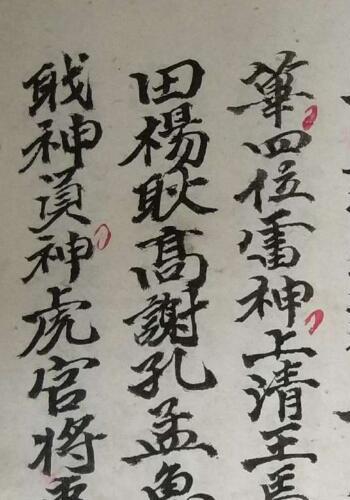 筆四位雷神上清王馬
田楊耿高謝孔孟魚
戝神負神虎官將